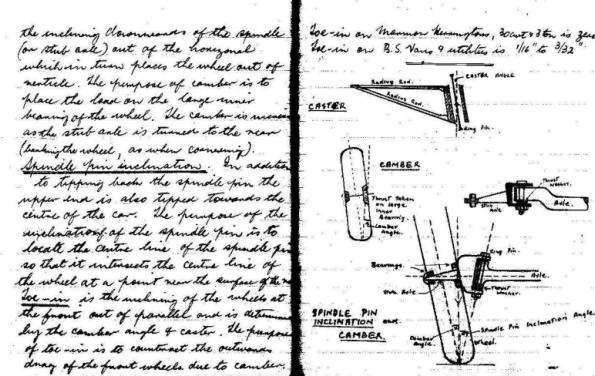 the inclining downwards of the spindle
(or stub axle) out of the horizontal
which in turn places the wheel out of
verticle. The purpose of camber is to
place the load on the large inner
bearing of the wheel. The camber is
as the stub axle is turned to the rear
(banking the wheel, as when cornering).
Spindle pin inclination. In addition
to tipping back the spindle pin the
upper end is also tipped towards the
centre of the car. The purpose of the
inclination of the spindle pin is to
locate the centre line of the spindle pin
so that it intersects the centre line of
the wheel at a point near the surface of the
Toe-in is the inclining of the wheels at
the front out of parallel and is determined
by the camber angle & caster. The purpose
of toe-in is to counteract the outwards
drag of the front wheels due to camber.
Toe-in on Marmon Herringtons, 30cwt & 3 ton is zero
Toe-in on B.S. Vans & utilities is 1/16" to 3/32".
CASTER ANGLE
Radius Rod.
Radius Rod.
CASTER
King Pin.
CAMBER
Thrust taken
on large
inner
Bearing.
Camber
Angle.
Thrust
washer.
Stub
axle
Axle.
King Pin.
Bearings.
Axle.
Stub Axle
Thrust
washer.
SPINDLE PIN
INCLINATION and.
CAMBER.
Spindle Pin Inclination Angle.
Camber
Angle.
Wheel.